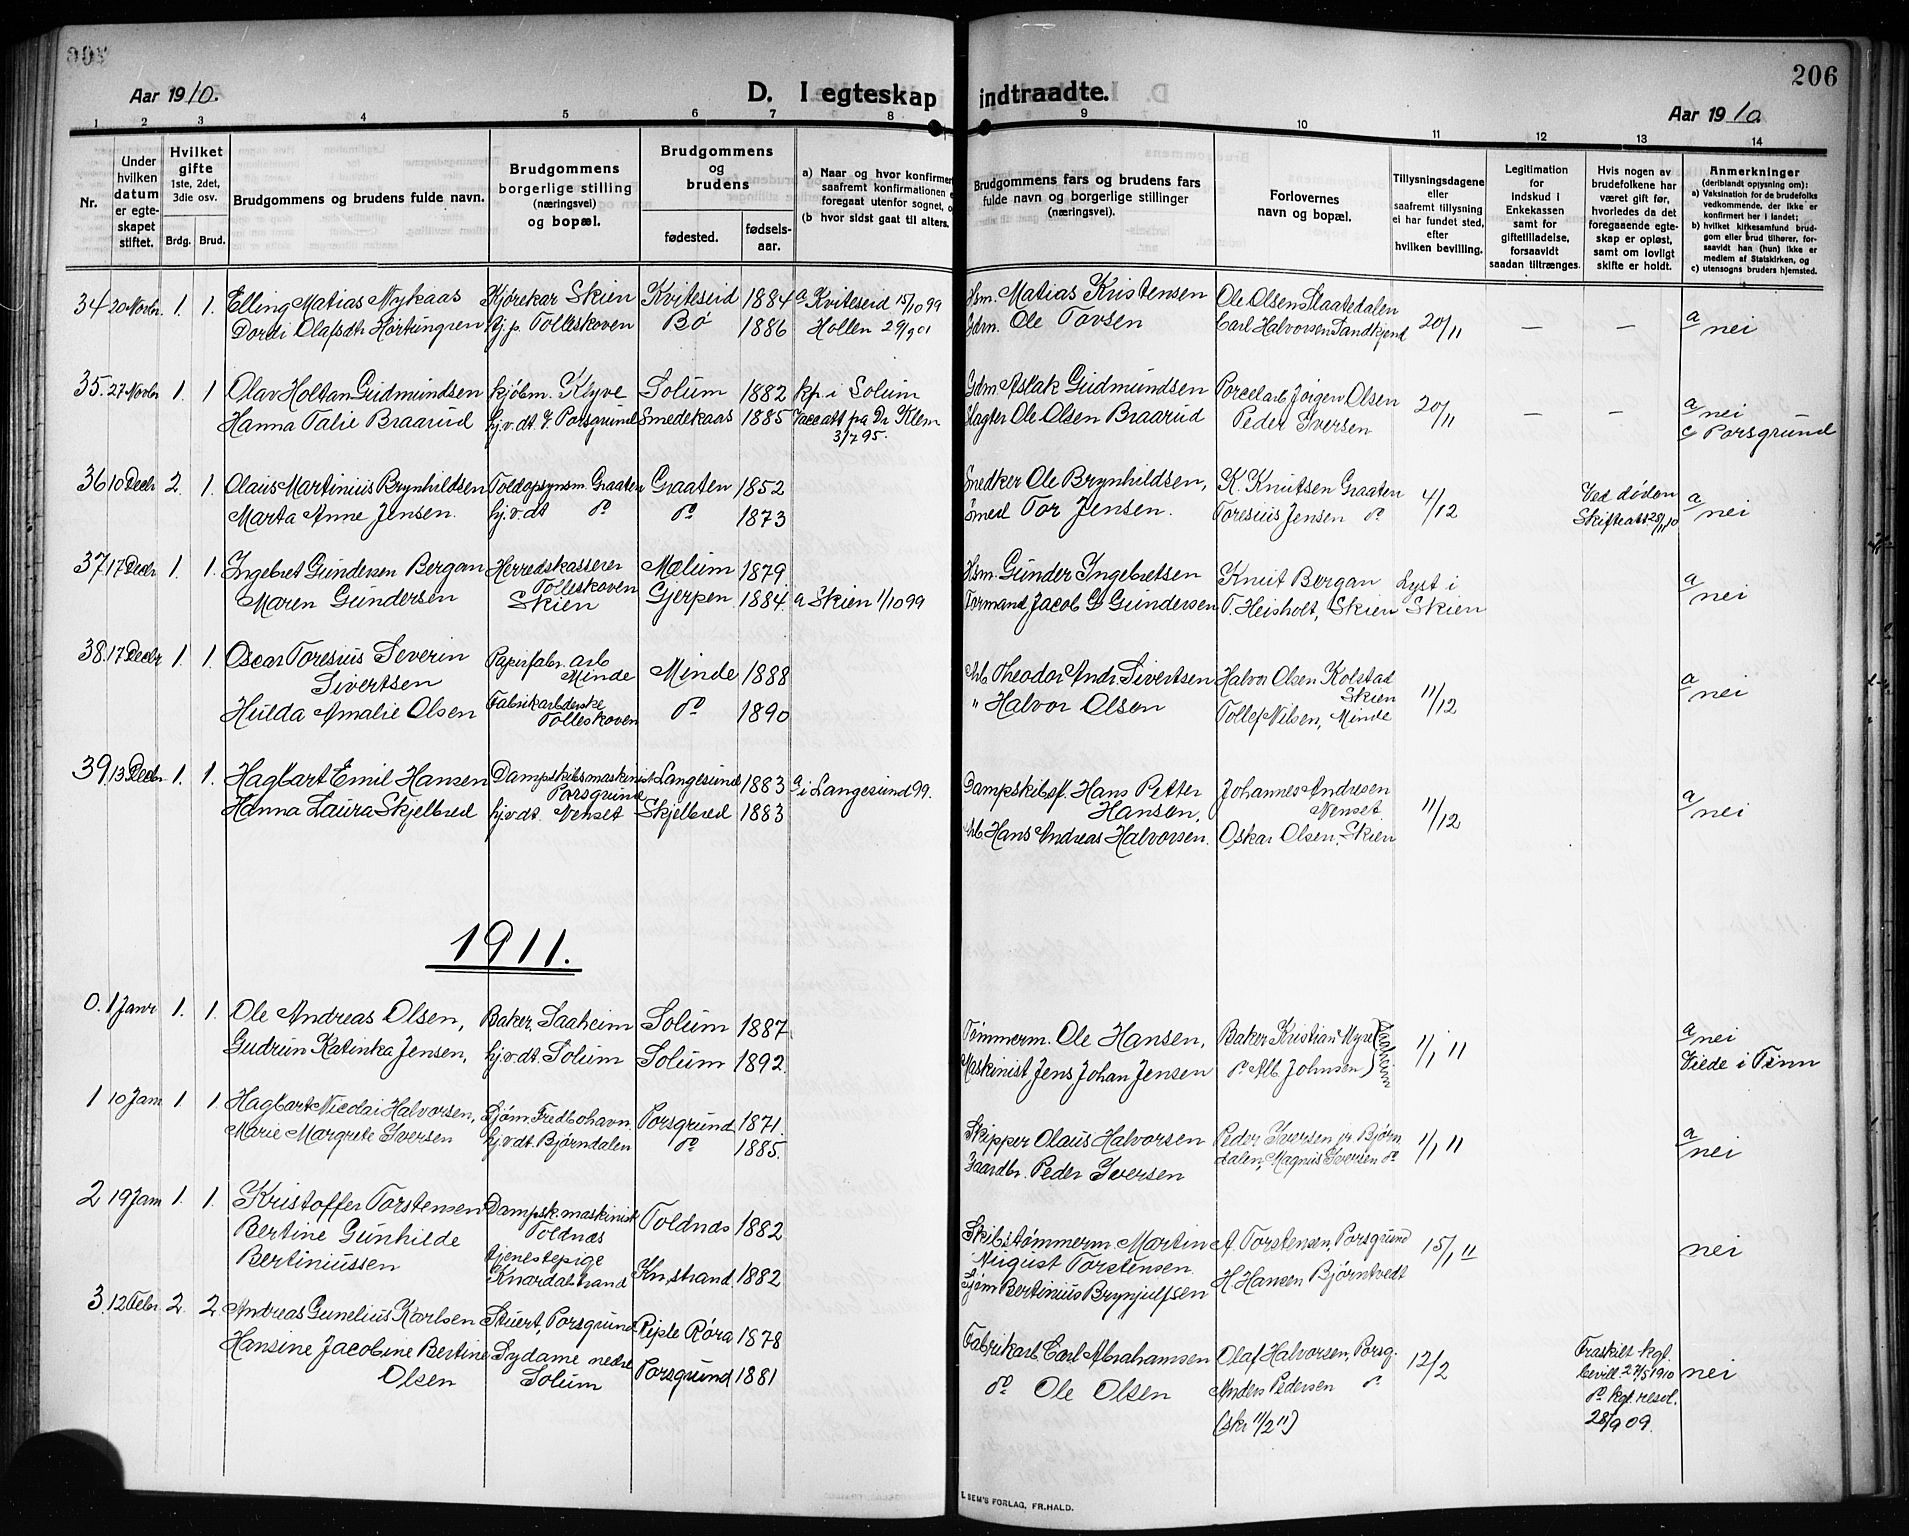 206
Aar 1910.
D. I egteskap indtraadte.
Aar 1910.
1 2 3 4 5 6 7 8 9 10 11 12 13 14
Nr.
Under hvilken datum er egteskapet stiftet.
Hvilket gifte 1ste, 2det, 3die osv.
Brdg. Brud.
Brudgommens og brudens fulde navn.
Brudgommens borgerlige stilling (næringsvei) og bopæl.
Brudgommens og brudens
fødested.
fødsels-aar.
a) Naar og hvor konfirmert
saafremt konfirmationen
foregaat utenfor sognet,
(b hvor sidst gaat til alters.
Brudgommens fars og brudens fars fulde navn og borgerlige stillinger (næringsvei).
Forlovernes navn og bopæl.
Tillysningsdagene eller saafremt tillysning ei har fundet sted, efter hvilken bevilling.
Legitimation for indskud i Enkekassen samt for giftetilladelse, forsaavidt saadan tiltrænges.
Hvis nogen av brudefolkene har været gift før, hvorledes da det foregaaende egteskap er opløst, samt om lovligt skifte er holdt.
Anmerkninger (deriblandt opjysning om):
a) Vaksination for de brudefolks vedkommende, der ikke er konfirmert her i landet;
b) hvilket kirkesamfund brudgom eller brud tilhører, forsaavidt han (hun) ikke er medlem af Statskirken, og
c) utensogns bruders hjemsted.
34 20 Novbr. 1. 1. Elling Matias Nykaas Kjørekar Skien Kviteseid 1884 a Kviteseid 15/10 99 Hsm. Matias Kristensen Ole Olsen Slaatedalen 20/11 — — a/nei
Dordi Olafsdtr Hørtungren hj.p. Tolleskoven Bø 1886 Hollen 29/9 01 Gdm. Ole Tovsen Carl Halvorsen Sandkjend
35. 27 Novbr 1. 1 Olav Holtan Gudmundsen kjøbm. Klyve Solum 1882 kp. i Solum Gdm Aslak Gudmundsen Porcelarb Jørgen Olsen 20/11 — — a/nei
Hanna Talie Braarud hj.v.dt. V. Porsgrund Smedekaas 1885 Vaccatt fra Dr Klem Slagter Ole Olsen Braarud Peder Iversen c/ Porsgrund
3/7 95.
36 10 Decbr 2. 1. Olaus Martinius Brynhildsen Toldopsynsm. Graaten Graaten 1852 Snedker Ole Brynhildsen, K. Knutsen Graaten 4/12 Ved døden a/nei
Marta Anne Jensen. hj.v.dt do do 1873 Smed Tor Jensen. Toresius Jensen do Skifteatt 28/11 10
37 17 Decbr 1. 1. Ingebret Gundersen Bergan Herredskasserer Mælum 1879. Hsm. Gunder Ingebretsen Knut Bergan Lyst i a/nei
Tolleskoven
Maren Gundersen Skien Gjerpen 1884. a Skien 1/10 99 Formand Jacob G Gundersen T. Heisholt, Skien Skien
38. 17 Decbr 1. 1. Oscar Toresius Severin Papirfabr. arb Minde 1888 Arb Theodor Andr. Sivertsen Halvor Olsen Kolstad 11/12 a/nei
Sivertsen Minde Skien
Hulda Amalie Olsen Fabrikarbderske do 1890 " Halvor Olsen Tollef Nilsen, Minde
Tolleskoven
39. 13 Decbr 1. 1. Hagbart Emil Hansen Dampskibsmaskinist Langesund 1883 a i Langesund 99. Dampskibsf. Hans Petter Johannes Andresen 11/12 a/nei
Porsgrund Hansen, Nenset
Hanna Laura Skjelbred hj.v.dt. Nenset Skjelbred 1883 Arb Hans Andreas Halvorsen. Oskar Olsen, Skien
1911.
0. 1 Janr 1. 1. Ole Andreas Olsen, Baker, Saaheim Solum 1887. Tømmerm. Ole Hansen, Baker Kristian Myre 1/1 11 a/nei
Gudrun Katinka Jensen, hj.v.dt. Solum Solum 1892. Maskinist Jens Johan Jensen do Alb. Johnsen Viede i Tinn
1 10 Jan 1 1. Hagbart Nicolai Halvorsen, Sjøm. Fredbohavn. Porsgrund 1871. Skipper Olaus Halvorsen Peder Iversen jr. Bjørn 1/1 11 a/nei
Marie Margrete Iversen hj.v.dt. Bjørndalen do 1885. Gaardbr. Peder Iversen dalen, Magnus Iversen do
2 19 Jan 1. 1. Kristoffer Torstensen Dampsk.maskinist Toldnæs 1882 Skibstømmerm Martin A. Torstensen, Porsgrund 15/1 11 nei
Bertine Gunhilde Toldnæs August Torstensen.
Bertiniussen tjenestepige
Knardalstrand Kn.strand 1882 Sjøm Bertinius Brynjulfsen H Hansen Bjørntvedt
3. 12 Febr 2. 2. Andreas Gunelius Karlsen Stuert, Porsgrund Piple Røra 1878 Fabrikarb. Carl Abrahamsen Olaf Halvorsen, Porsg. 12/2 Fraskilt kgl. nei
Hansine Jacobine Bertine Sydame nedre Porsgrund 1881 do Ole Olsen Anders Pedersen do bevill. 27/5 1910
Olsen Solum (skr 11/2 11) do kgl. resol.
28/9 09.
E SEM'S FORLAG, FR.HALD.